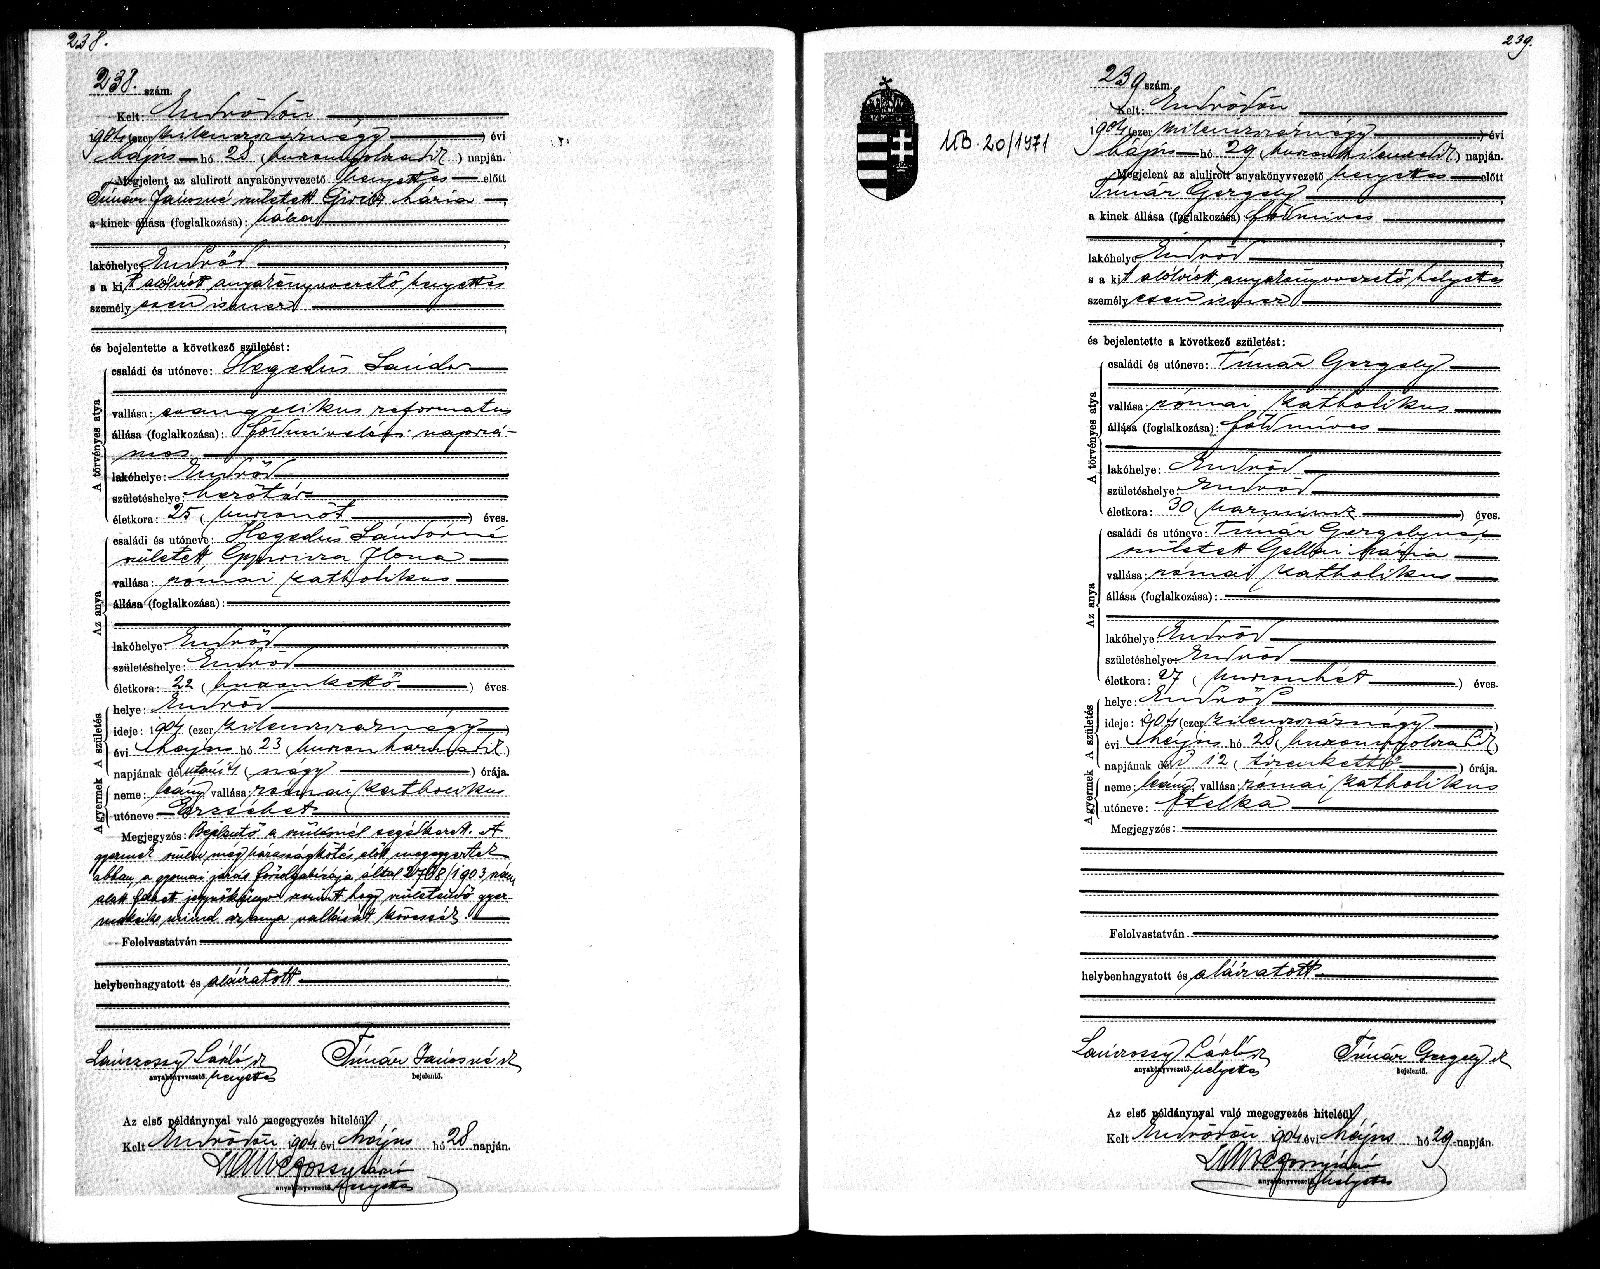 238.
238. szám.
Kelt: Endrődön
1904 (ezer kilenczszáznégy) évi
május hó 28 (huszonnyolczadik) napján.
Megjelent az alulirott anyakönyvvezető helyettes előtt
Tímár Jánosné született Mária
a kinek állása (foglalkozása): bába
lakóhelye Endrőd
s a kit alólirott anyakönyvvezető helyettes
személyesen ismer
és bejelentette a következő születést:
A törvényes atya
családi és utóneve: Hegedüs Sándor
vallása: evangelikus reformatus
állása (foglalkozása): földmivelési napszá-
mos
lakóhelye: Endrőd
születéshelye:
életkora: 25 (huszonöt) éves.
Az anya
családi és utóneve: Hegedüs Sándorné
született Ilona
vallása: római katholikus
állása (foglalkozása):
lakóhelye: Endrőd
születéshelye: Endrőd
életkora: 22 (huszonkettő) éves.
A születés
helye: Endrőd
ideje: 1904 (ezer kilenczszáznégy)
évi május hó 23 (huszonharmadik)
napjának délutáni 4 (négy) órája.
A gyermek
neme: leány, vallása: római katholikus
utóneve: Erzsébet
Megjegyzés: Bejelentő a szülésnél segélkezett. A
gyermek szülei még házasságkötés előtt megegyeztek
abban, a gyomai járás főszolgabirája által 2768/1903 szám
alatt felvett jegyzőkönyv szerint hogy születendő gyer-
mekeik mind az anya vallását kövessék.
Felolvastatván
helybenhagyatott és aláíratott
László
anyakönyvvezető. helyettes
Tímár Jánosné
bejelentő.
Az első példánynyal való megegyezés hiteléül
Kelt Endrődön 1904 évi május hó 28 napján.
László
anyakönyvvezető helyettes
239.
MB. 20/1971
239 szám.
Kelt: Endrődön
1904 (ezer kilenczszáznégy) évi
május hó 29 (huszonkilenczedik) napján.
Megjelent az alulirott anyakönyvvezető helyettes előtt
Tímár Gergely
a kinek állása (foglalkozása) földmives
lakóhelye Endrőd
s a kit alólirott anyakönyvvezető helyettes
személyesen ismer
és bejelentette a következő születést:
A törvényes atya
családi és utóneve: Tímár Gergely
vallása: római katholikus
állása (foglalkozása): földmives
lakóhelye: Endrőd
születéshelye: Endrőd
életkora: 30 (harmincz) éves.
Az anya
családi és utóneve: Tímár Gergelyné,
született Gellai Mária
vallása: római katholikus
állása (foglalkozása):
lakóhelye: Endrőd
születéshelye: Endrőd
életkora: 27 (huszonhét) éves.
A születés
helye: Endrőd
ideje: 1904 (ezer kilenczszáznégy)
évi május hó 28 (huszonnyolczadik)
napjának dél 12 (tizenkettő) órája.
A gyermek
neme: leány, vallása: római katholikus
utóneve: Etelka
Megjegyzés:
Felolvastatván
helybenhagyatott és aláíratott
László
anyakönyvvezető. helyettes
Tímár Gergely
bejelentő.
Az első példánynyal való megegyezés hiteléül
Kelt Endrődön 1904 évi május hó 29 napján.
László
anyakönyvvezető helyettes